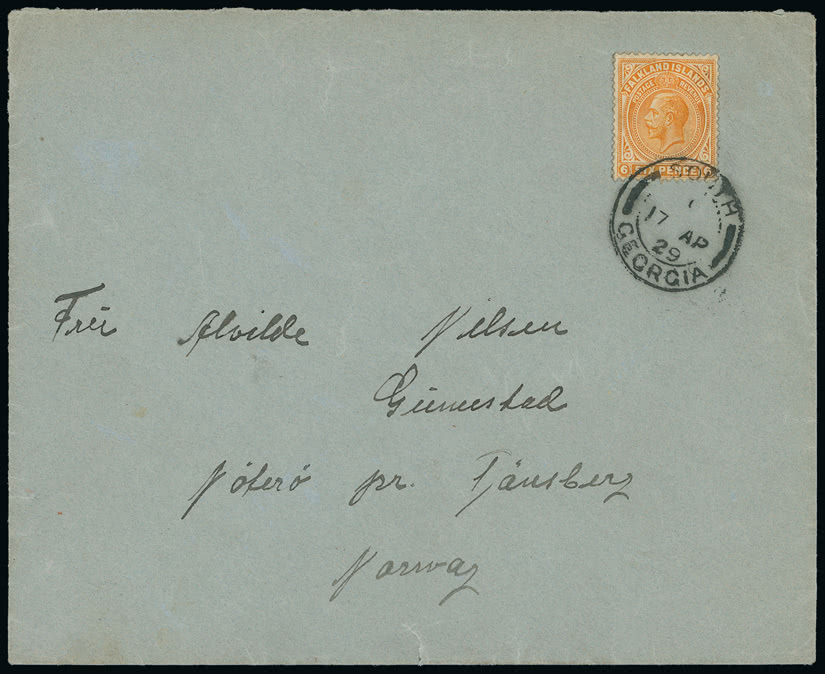 FALKLAND ISLANDS
POSTAGE REVENUE
6 SIX PENCE 6
SOUTH
1
17 AP
29
GEORGIA
Frü Alvilde Nilsen
Gümestad
Nöterö pr. Tjänsberg
Norway